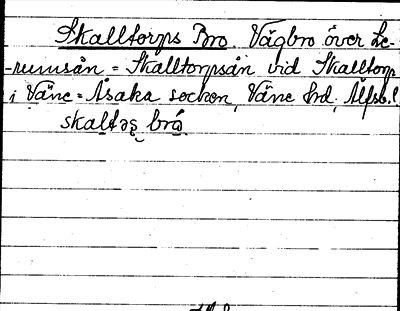 Skalltorps Bro. Vägbro över Le-
-rumsån = Skalltorpsån vid Skalltorp
i Väne-Åsaka socken, Väne hrd, Älfsb. l.
skaltəs̡ brọ́